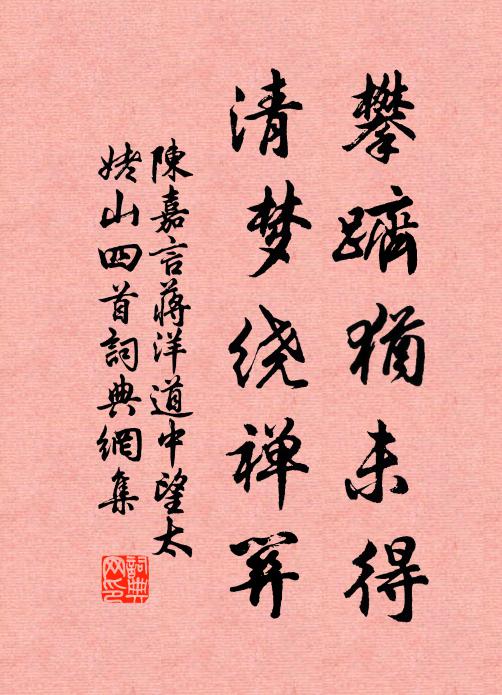 攀躋猶未得
清梦绕禅関
陳嘉言蔣洋道中望太
姥山四首詞典網集
詞典网印